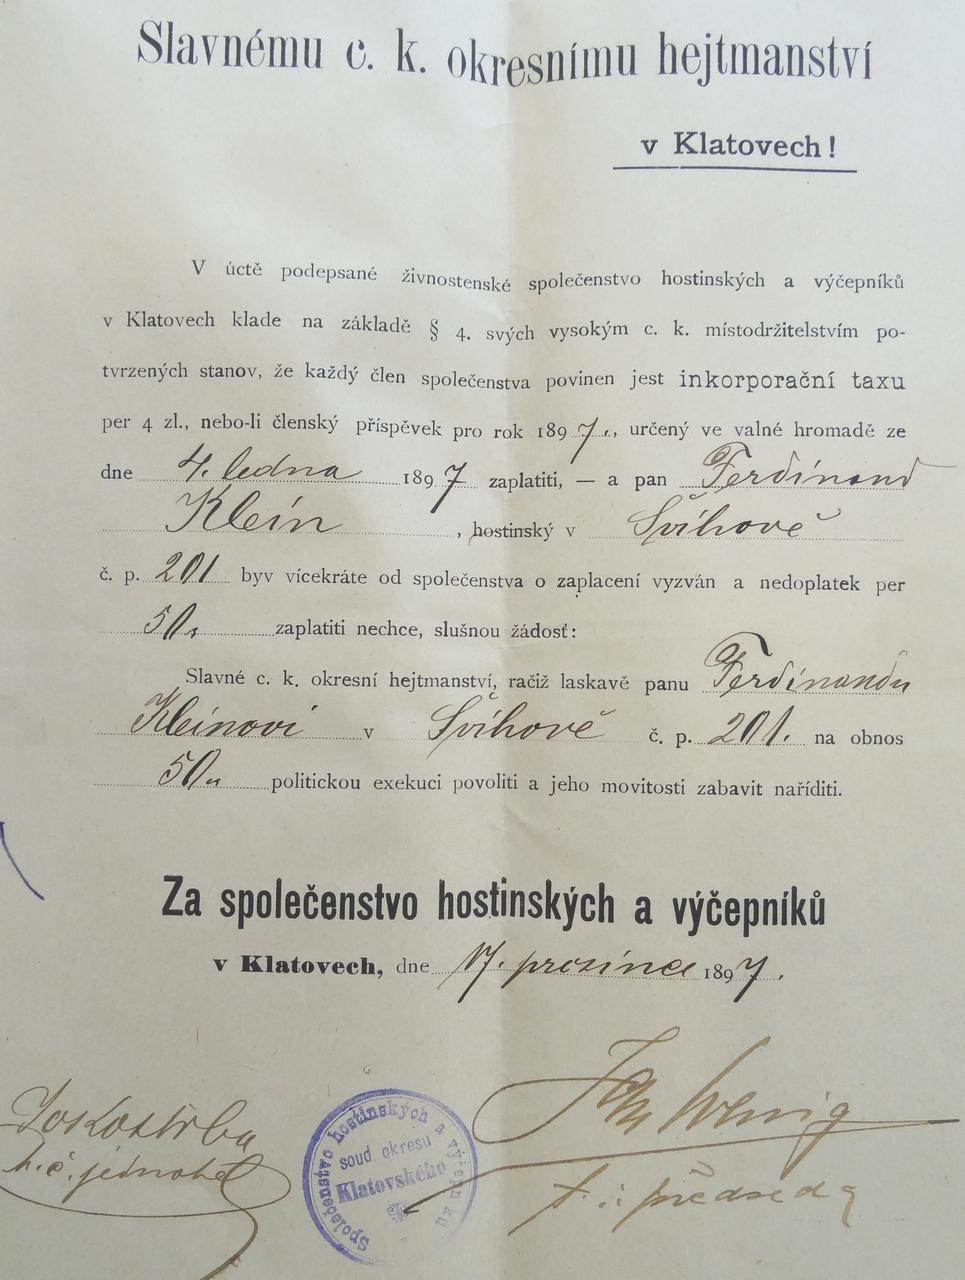 Slavnému c. k. okresnímu hejtmanství
v Klatovech!
V úctě podepsané živnostenské společenstvo hostinských a výčepníků
v Klatovech klade na základě § 4. svých vysokým c. k. místodržitelstvím po-
tvrzených stanov, že každý člen společenstva povinen jest inkorporační taxu
per 4 zl., nebo-li členský příspěvek pro rok 1897., určený ve valné hromadě ze
dne 4. ledna 1897 zaplatiti, — a pan Ferdinand
Klein, hostinský v Švihově
č. p. 201 byv vícekráte od společenstva o zaplacení vyzván a nedoplatek per
50 zaplatiti nechce, slušnou žádosť:
Slavné c. k. okresní hejtmanství, račiž laskavě panu Ferdinandu
Kleinovi v Švihově č. p. 201. na obnos
50 politickou exekuci povoliti a jeho movitosti zabavit naříditi.
Za společenstvo hostinských a výčepníků
v Klatovech, dne 17. prosince 1897.
Společenstvo hostinských a výčepníků
soud. okresu
Klatovského
předseda